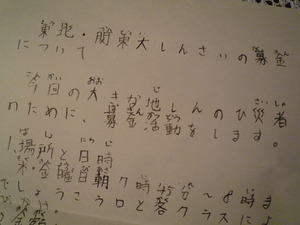 東北・関東大しんさいの募金
について
今回の大きな地しんのひ災者
のために、募金活動をします。
1.場所と日時
木・金曜日朝7時45分〜8時ま
でしょうこう口と各クラスによ